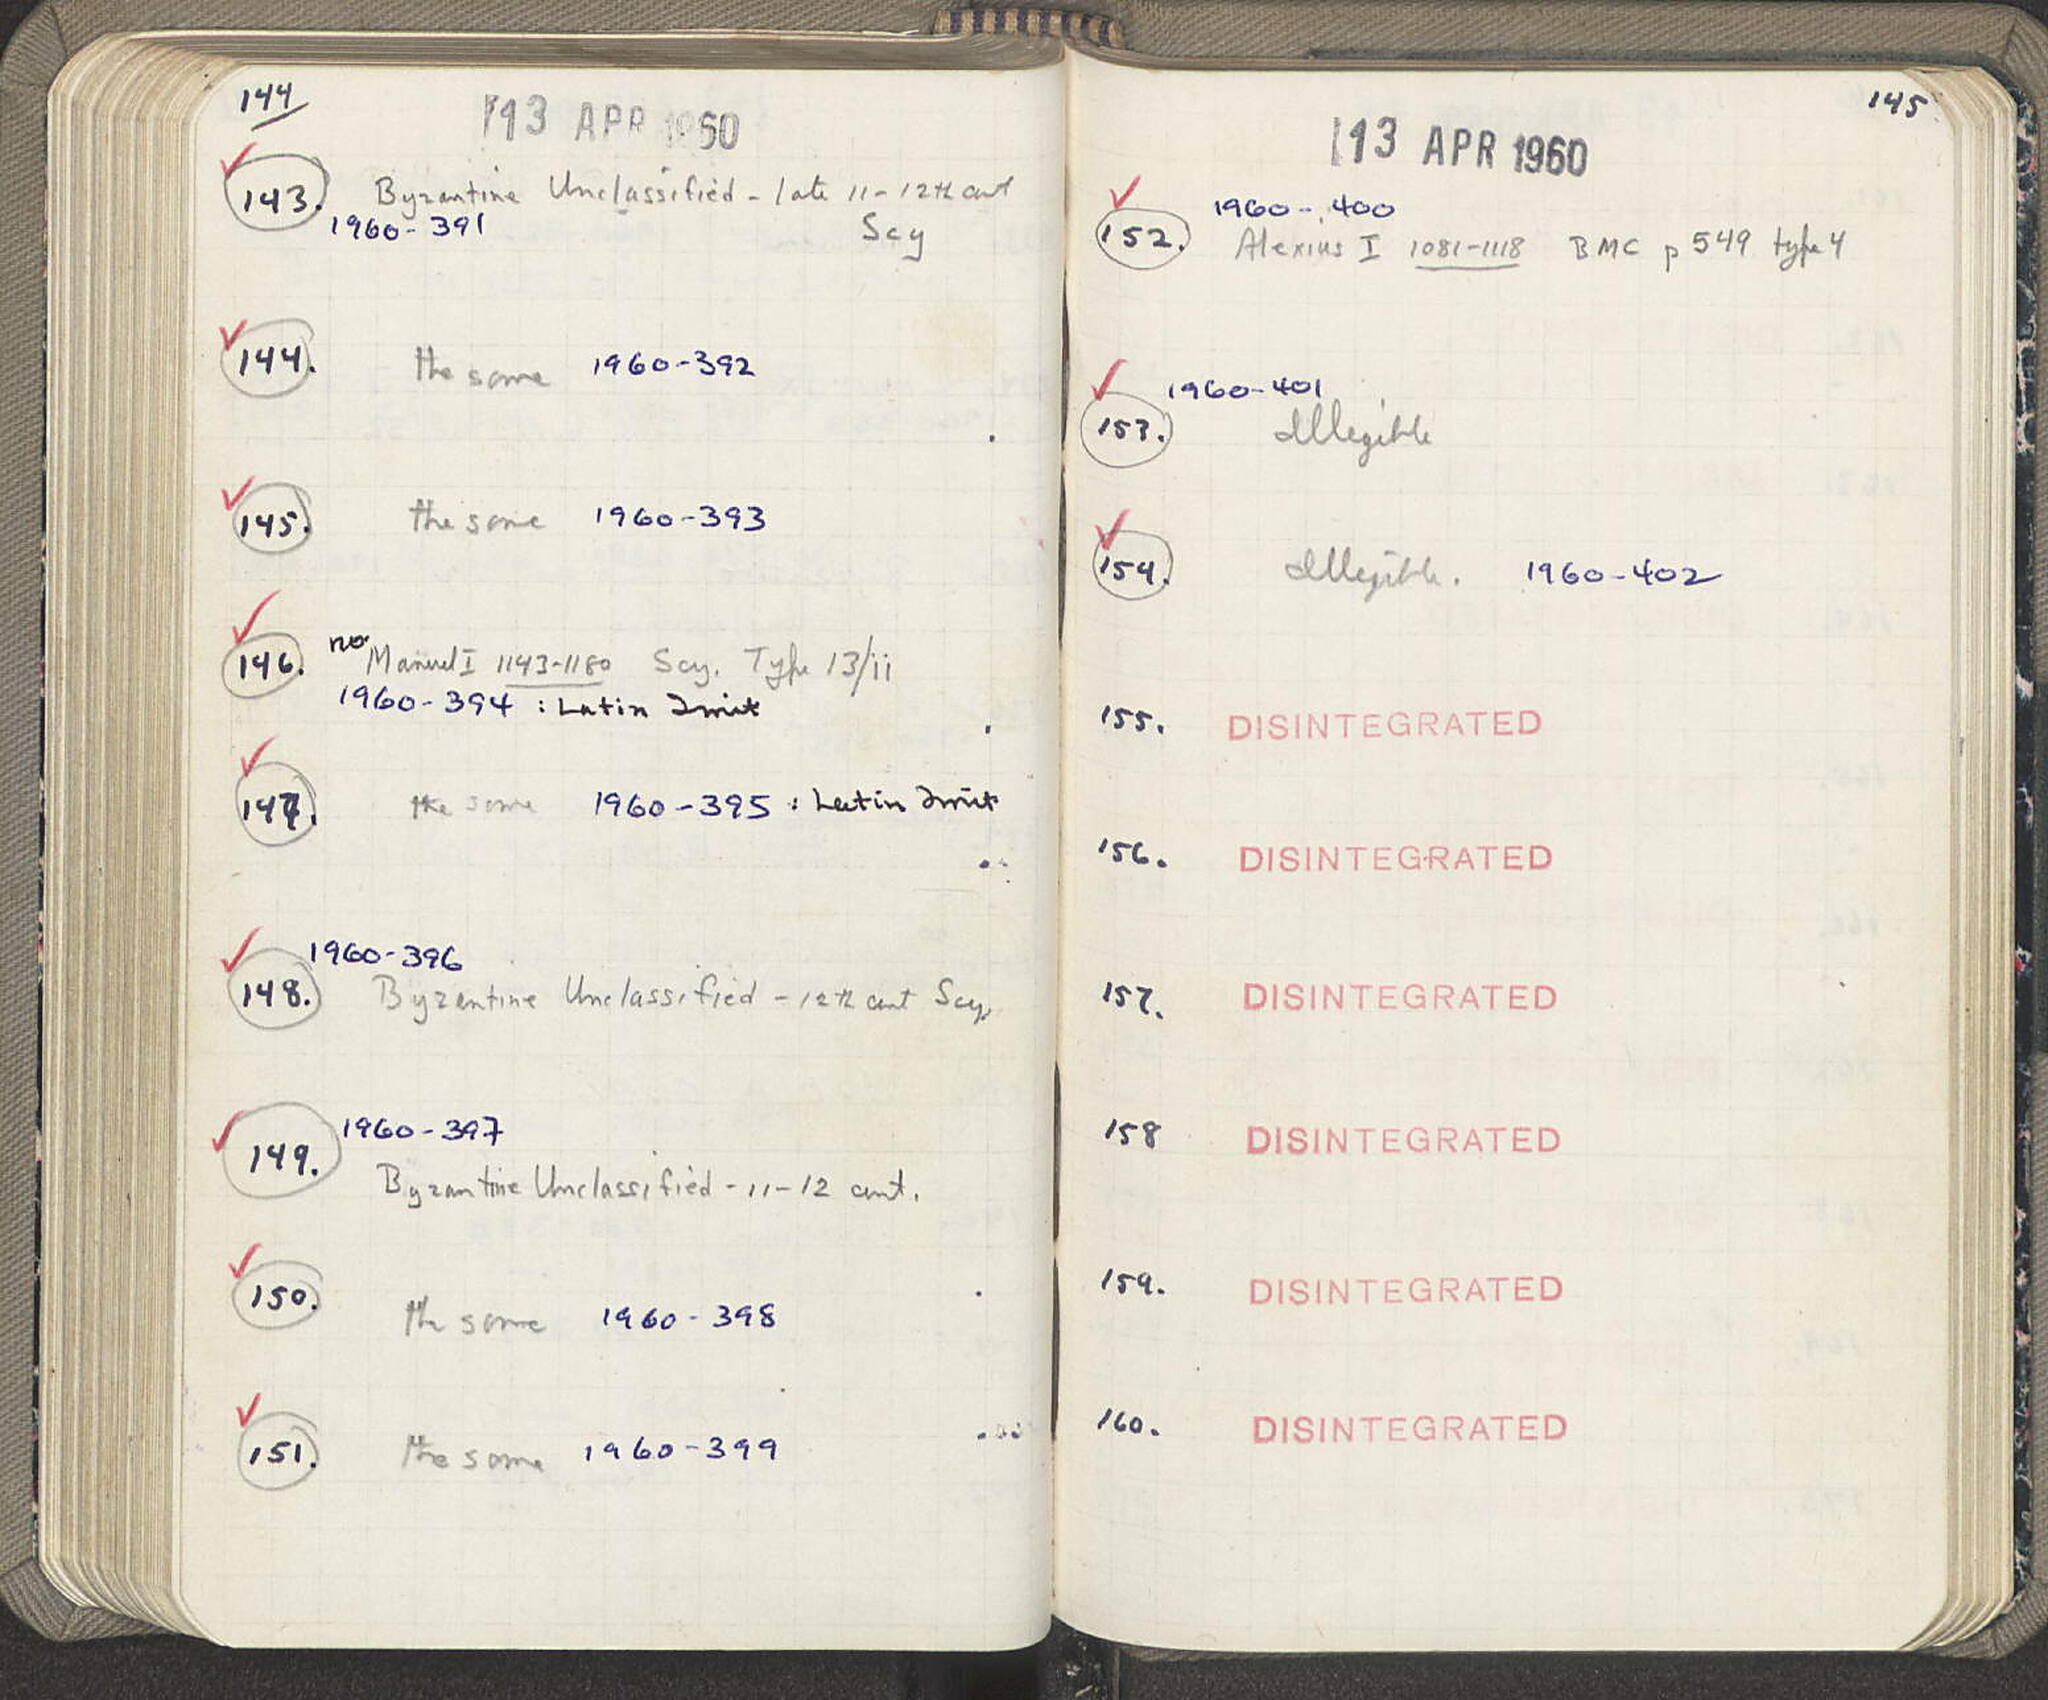 144
13 APR 1960
143. Byzantine Unclassified - late 11-12th cent
1960-391 Scy
144. the same 1960-392
145. the same 1960-393
146. no Manuel I 1143-1180 Scy. Type 13/ii
1960-394 : Latin Imit
147. the same 1960-395 : Latin Imit
1960-396
148. Byzantine Unclassified - 12th cent Scy.
1960-397
149.
Byzantine Unclassified - 11-12 cent.
150. the same 1960-398
151. the same 1960-399
145
13 APR 1960
1960-400
152. Alexius I 1081-1118 BMC p 549 type 4
1960-401
153. Illegible
154. Illegible. 1960-402
155. DISINTEGRATED
156. DISINTEGRATED
157. DISINTEGRATED
158 DISINTEGRATED
159. DISINTEGRATED
160. DISINTEGRATED